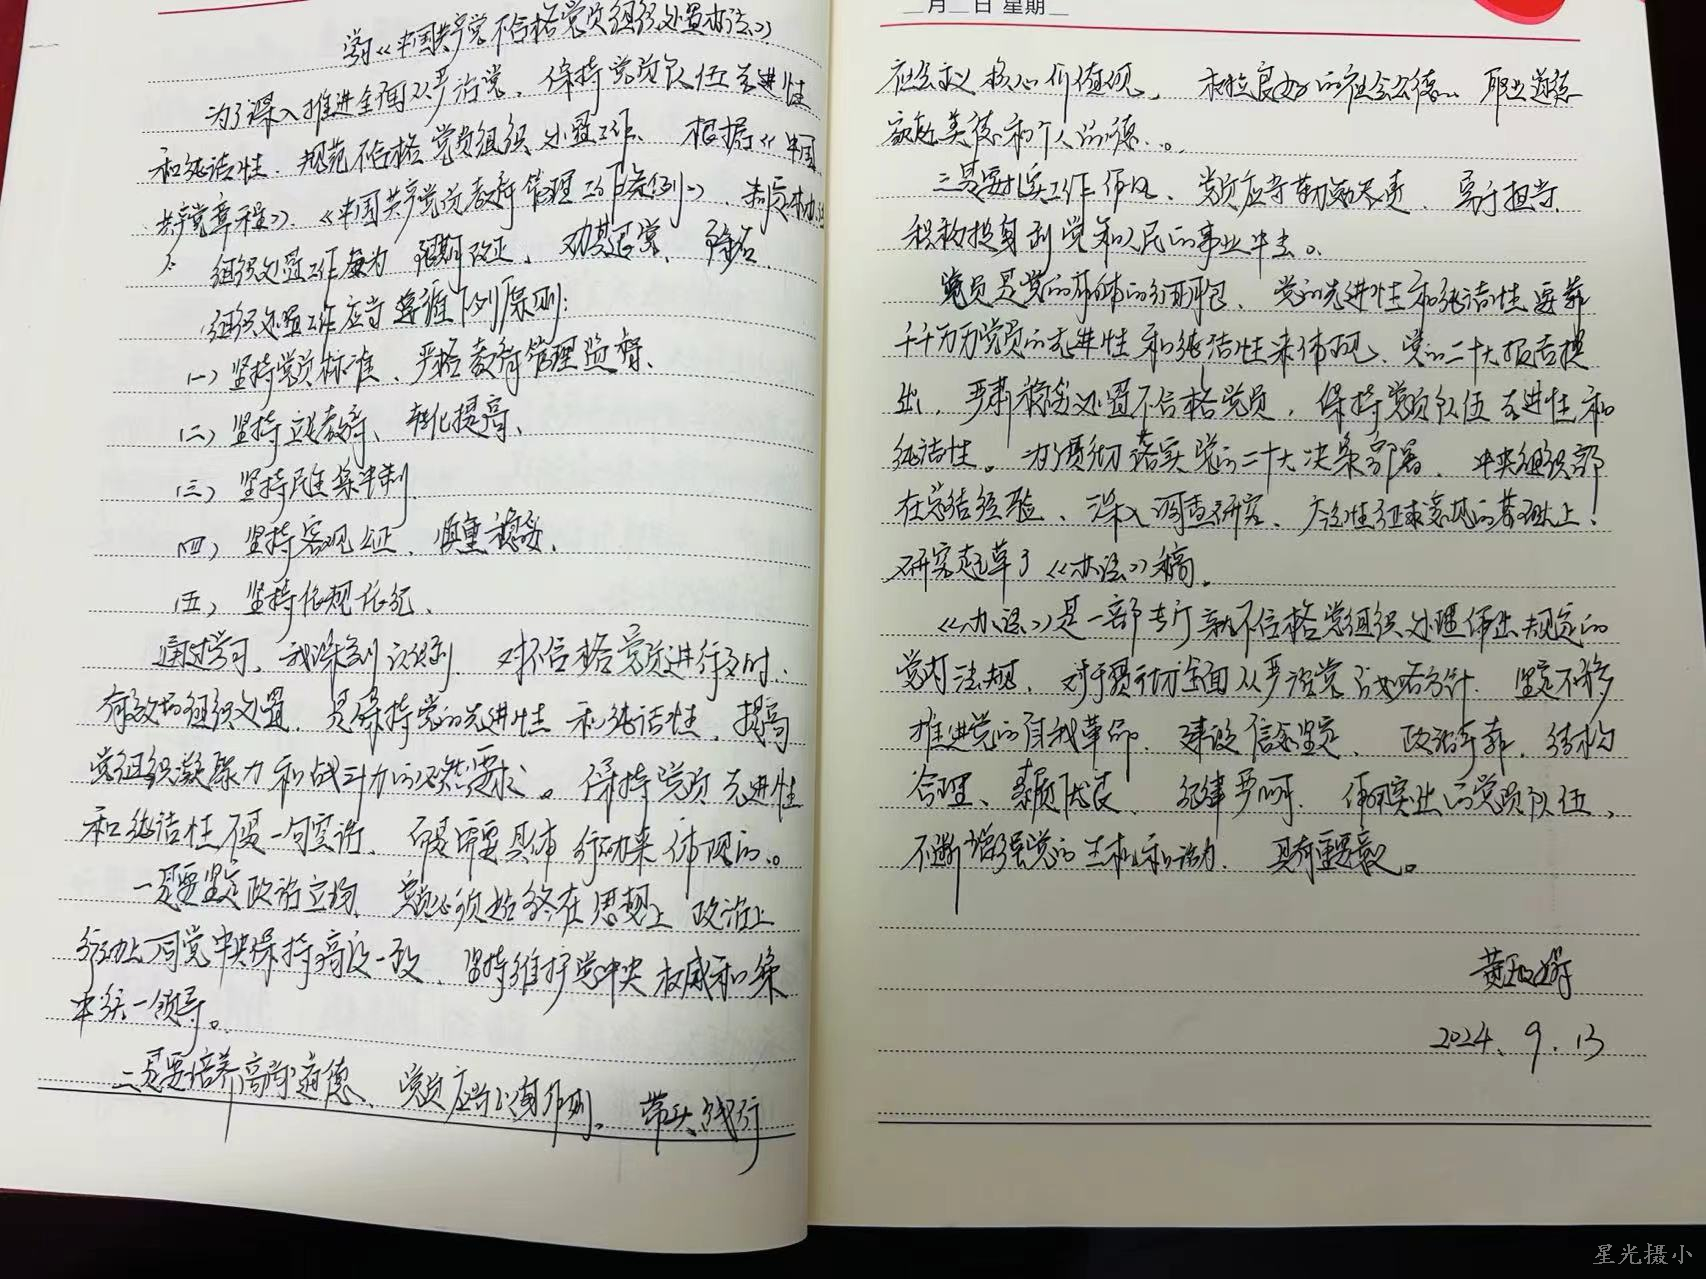 学习《中国共产党不合格党员组织处置办法》
为了深入推进全面从严治党、保持党员队伍先进性
和纯洁性、规范不合格党员组织处置工作、根据《中国
共产党章程》、《中国共产党员教育管理工作条例》、制定本办法
组织处置工作分为 限期改正、劝其退党、除名、
组织处置工作应当遵循下列原则：
(一) 坚持党员标准、严格教育管理监督、
(二) 坚持立足教育、转化提高、
(三) 坚持民主集中制
(四) 坚持客观公正、慎重稳妥、
(五) 坚持依规依纪、
通过学习、我深刻认识到 对不合格党员进行及时、
有效的组织处置、是保持党的先进性和纯洁性、提高
党组织凝聚力和战斗力的必然要求。保持党员先进性
和纯洁性不是一句空话、而是需要具体行动来体现的。
一是要坚定政治立场、党员必须始终在思想上 政治上
行动上同党中央保持高度一致、坚持维护党中央权威和集
中统一领导。
二是要培养高尚道德、党员应当以身作则、带头践行
月 日 星期
社会主义核心价值观、树立良好的社会公德、职业道德
家庭美德和个人品德。
三是要扎实工作作风、党员应当勤勉尽责、勇于担当、
积极投身到党和人民的事业中去。
党员是党的肌体的细胞、党的先进性和纯洁性要靠
千千万万党员的先进性和纯洁性来体现、党的二十大报告提
出，严肃稳妥处置不合格党员，保持党员队伍先进性和
纯洁性。为了贯彻落实党的二十大决策部署、中央组织部
在总结经验、深入调查研究、广泛性征求意见的基础上！
研究起草了《办法》稿。
《办法》是一部专门就不合格党组织处理作出规定的
党内法规、对于贯彻全面从严治党战略方针、坚定不移
推进党的自我革命、建设信念坚定、政治可靠、结构
合理、素质优良 纪律严明、作用突出的党员队伍、
不断增强党的生机和活力、具有重要意义。
2024、9、13
星光摄小